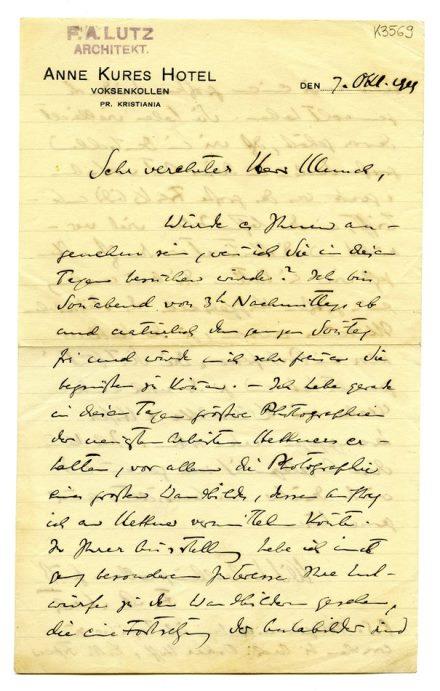 K3569
F. A. LUTZ
ARCHITEKT.
ANNE KURES HOTEL
VOKSENKOLLEN
PR. KRISTIANIA
DEN 7. Okt.
Sehr verehrter Herr Munch,
Würde es Ihnen an-
genehm sein, wenn ich Sie in diesen
Tagen besuchen würde? Ich bin
Sonnabend von 3h Nachmittags ab
und natürlich den ganzen Sonntag
frei und würde mich sehr freuen Sie
begrüssen zu können. – Ich habe gerade
in diesen Tagen grössere Photographien
der neuesten Arbeiten Hettners er-
halten, vor allem die Photographie
eines grossen Wandbilds, dessen Auftrag
ich an Hettner vermitteln konnte.
In Ihrer Ausstellung habe ich mit
ganz besonderem Interesse Ihre Ent-
würfe zu den Wandbildern gesehen,
die eine Fortsetzung der Aulabilder sind